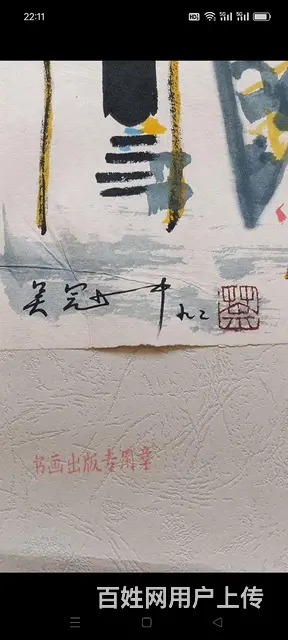 22:11
吴冠中 九二
书画出版专用章
百姓网用户上传